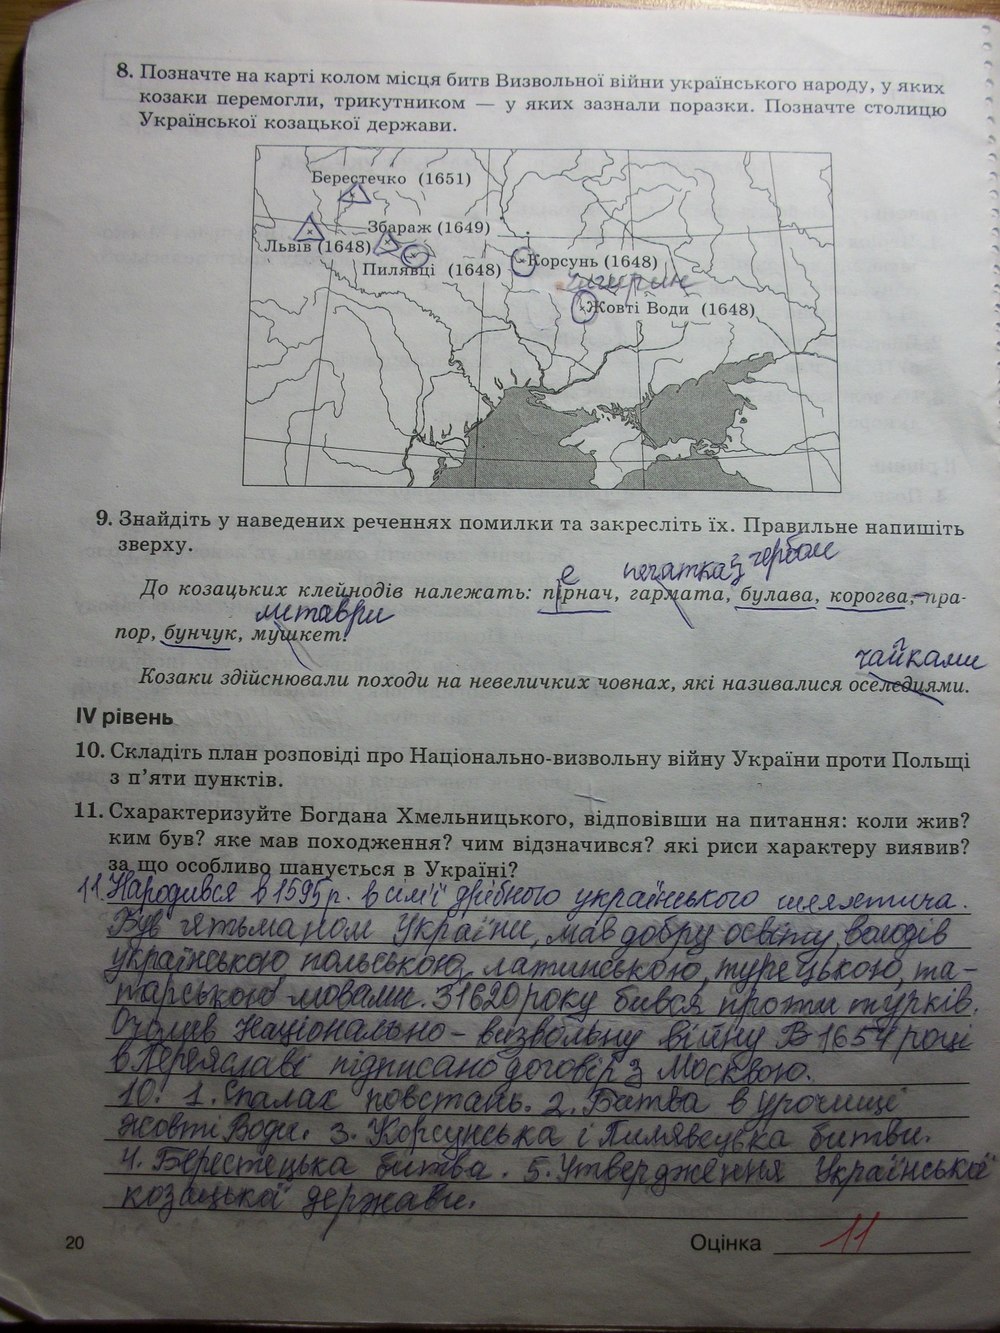 8. Позначте на карті колом місця битв Визвольної війни українського народу, у яких
козаки перемогли, трикутником — у яких зазнали поразки. Позначте столицю
Української козацької держави.
Берестечко (1651)
Збараж (1649)
Львів (1648)
Пилявці (1648)
Корсунь (1648)
Чигирин
Жовті Води (1648)
9. Знайдіть у наведених реченнях помилки та закресліть їх. Правильне напишіть
зверху.
е печатка з гербом
До козацьких клейнодів належать: пірнач, гармата, булава, корогва, пра-
литаври
пор, бунчук, мушкет.
чайками
Козаки здійснювали походи на невеличких човнах, які називалися оселедцями.
IV рівень
10. Складіть план розповіді про Національно-визвольну війну України проти Польщі
з п’яти пунктів.
11. Схарактеризуйте Богдана Хмельницького, відповівши на питання: коли жив?
ким був? яке мав походження? чим відзначився? які риси характеру виявив?
за що особливо шанується в Україні?
11. Народився в 1595р. в сім'ї дрібного українського шляхтича.
Був гетьманом України, мав добру освіту, володів
українською, польською, латинською, турецькою, та-
тарською мовами. З 1620 року бився проти турків.
Очолив Національно-визвольну війну. В 1654 році
в Переяславі підписано договір з Москвою.
10. 1. Спалах повстань. 2. Битва в урочищі
Жовті Води. 3. Корсунська і Пилявецька битви.
4. Берестецька битва. 5. Утвердження Української
козацької держави.
20
Оцінка 11